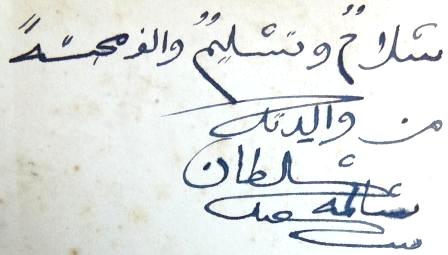 سلامٌ وتسليمٌ والف محبةً
من والدتك
سلطان
سالمه
سعيد